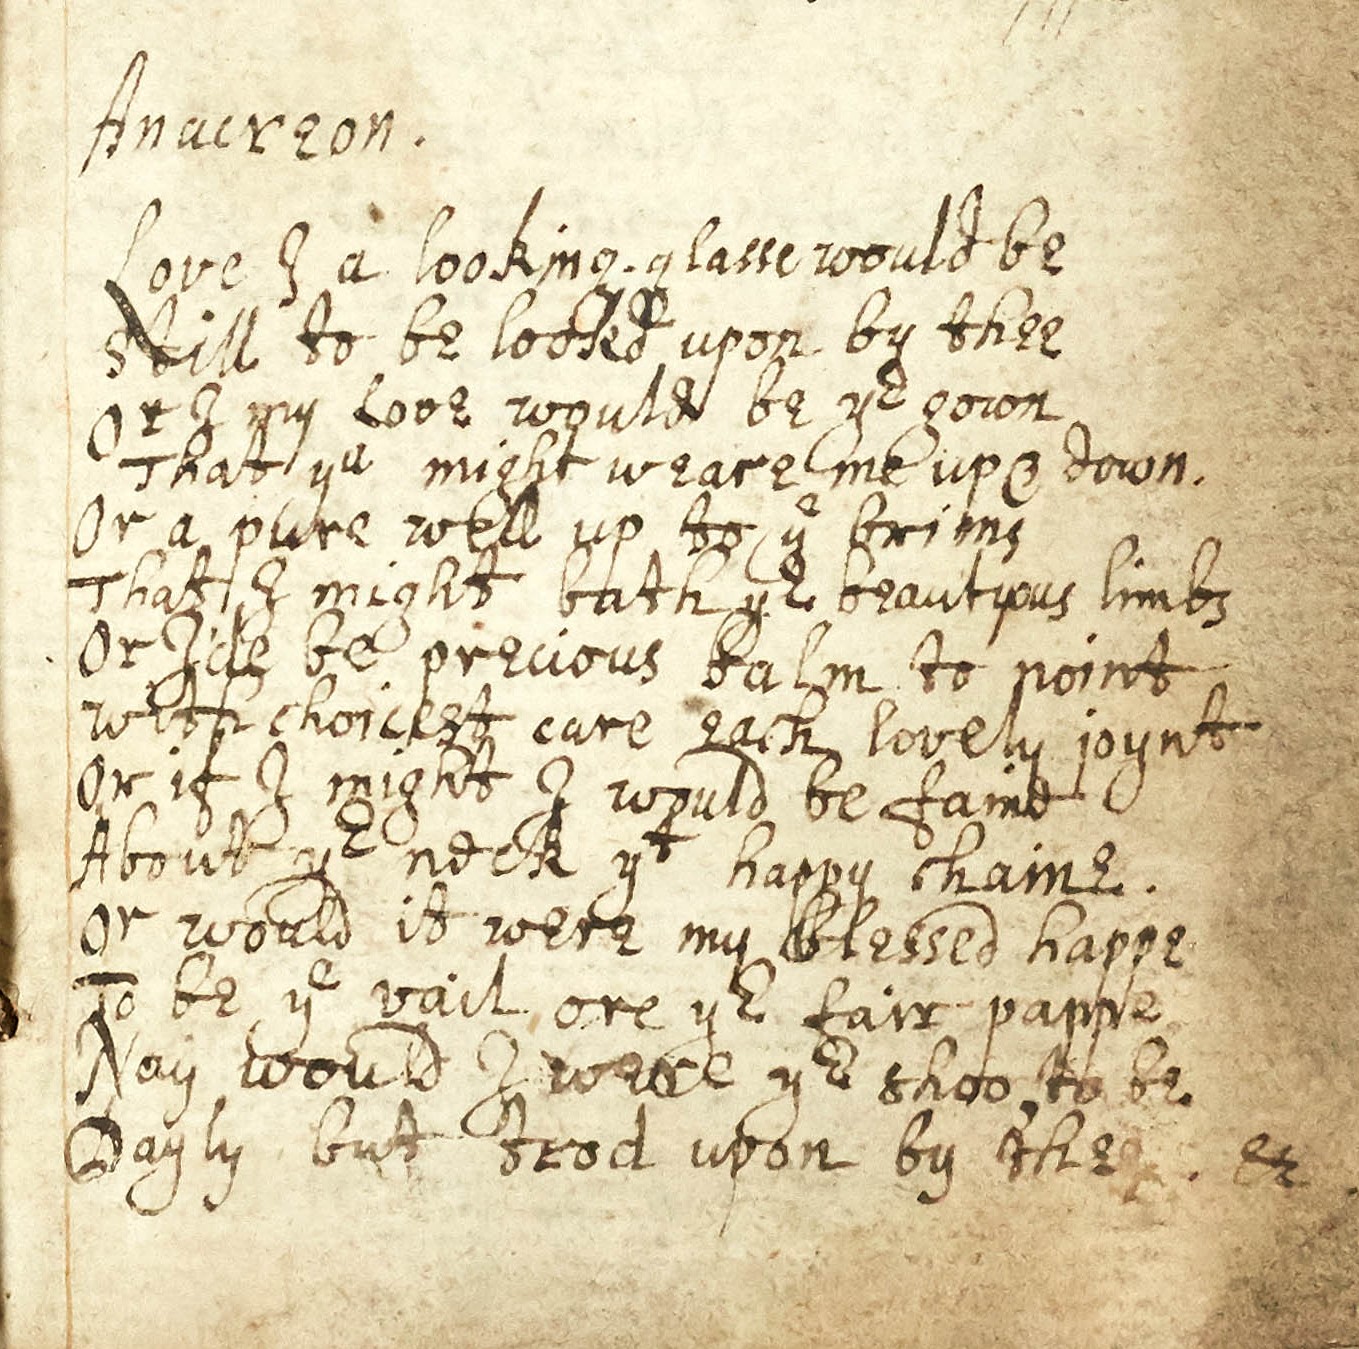 Anacreon.
Love I a looking-glasse would be
Still to be lookd upon by thee
Or I my Love would be yᵉ gown
That yᵘ might weare me up & down.
Or a pure well up to yᵉ brims
That I might bath yᵉ beautyous limbs
Or I'de be precious balm to noint
with choicest care each lovely joynt
Or if I might I would be faine
About yᵉ neck yᵗ happy chaine.
Or would it were my blessed happe
To be yᵉ vail ore yᵉ fair pappe
Nay would I were yᵉ shoo, to be
Dayly but trod upon by thee. &c.